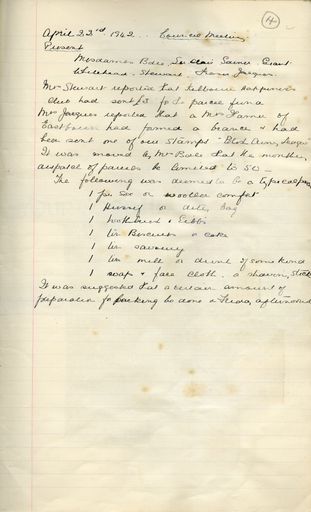 4
April 22nd 1942. Council Meeting
Present
Mesdames Bale Sinclair Grant
Whitehand. Stewart. Jaques.
Mrs Stewart reported that Kilbourne
Club had sent £3 for parcel fund
Mrs Jaques reported that a Mrs of
had formed a branch & had
been sent one of our stamps -
It was moved by Mrs Bale that the months,
of parcels be limited to 50 -
The following was deemed to be a typical parcel
1 pr sox or woollen comfort
1 hussif or ditty bag
1 tooth brush &
1 tin Biscuits or cake
1 tin savoury
1 tin milk or drink of some kind
1 soap & face cloth. or shaving stick
It was suggested that a certain amount of
preparation for packing be done on Friday afternoons